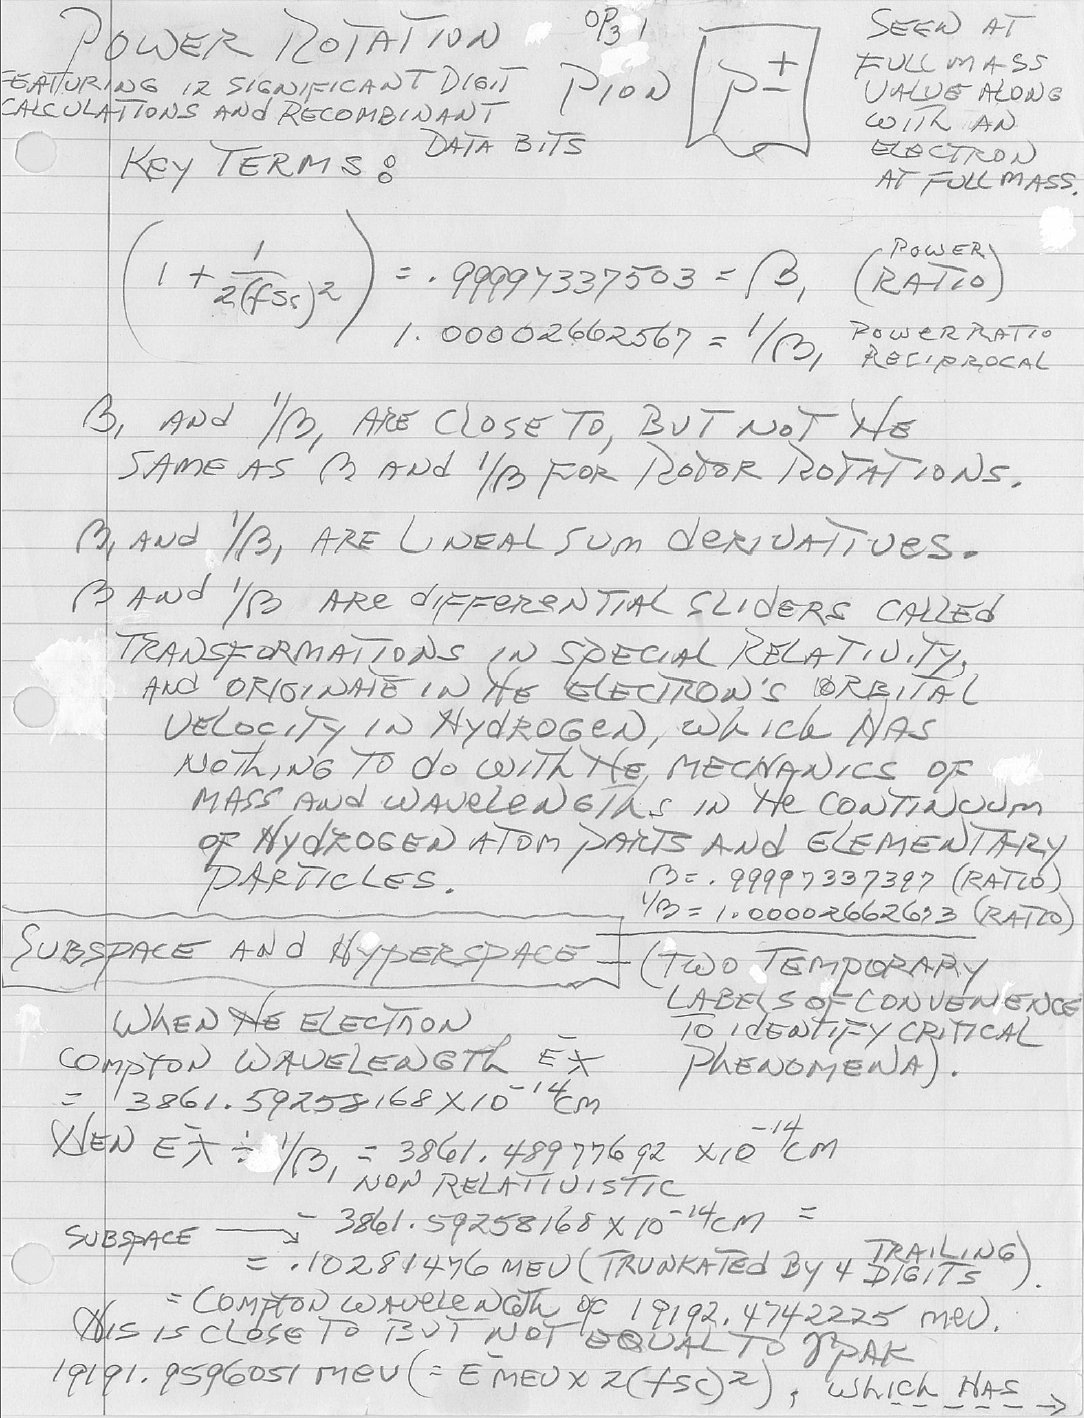 POWER ROTATION
OP31
FEATURING 12 SIGNIFICANT DIGIT
CALCULATIONS AND RECOMBINANT
DATA BITS
PION
P±
SEEN AT
FULL MASS
VALUE ALONG
WITH AN
ELECTRON
AT FULL MASS.
KEY TERMS:
(1 + 1/2(fsc)2) = .99997337503 = β1 (POWER RATIO)
1.00002662567 = 1/β1 POWER RATIO
RECIPROCAL
β1 AND 1/β1 ARE CLOSE TO, BUT NOT THE
SAME AS β AND 1/β FOR ROTOR ROTATIONS.
β1 AND 1/β1 ARE LINEAL SUM DERIVATIVES.
β AND 1/β ARE DIFFERENTIAL SLIDERS CALLED
TRANSFORMATIONS IN SPECIAL RELATIVITY,
AND ORIGINATE IN THE ELECTRON'S ORBITAL
VELOCITY IN HYDROGEN, WHICH HAS
NOTHING TO DO WITH THE MECHANICS OF
MASS AND WAVELENGTHS IN THE CONTINUUM
OF HYDROGEN ATOM PARTS AND ELEMENTARY
PARTICLES.
β = .99997337397 (RATIO)
1/β = 1.00002662673 (RATIO)
SUBSPACE AND HYPERSPACE — (TWO TEMPORARY
LABELS OF CONVENIENCE
TO IDENTIFY CRITICAL
PHENOMENA).
WHEN THE ELECTRON
COMPTON WAVELENGTH E⁻ƛ
= 3861.59258168 X 10⁻¹⁴cm
THEN E⁻ƛ ÷ 1/β1 = 3861.48977692 X10⁻¹⁴cm
NON RELATIVISTIC
- 3861.59258168 X 10⁻¹⁴cm =
SUBSPACE →
= .10281476 MEV (TRUNKATED BY 4 TRAILING DIGITS).
= COMPTON WAVELENGTH OF 19192.4742225 MEV.
THIS IS CLOSE TO BUT NOT EQUAL TO γPAK
19191.9596051 MEV (= E⁻MEV X 2(fsc)2), WHICH HAS